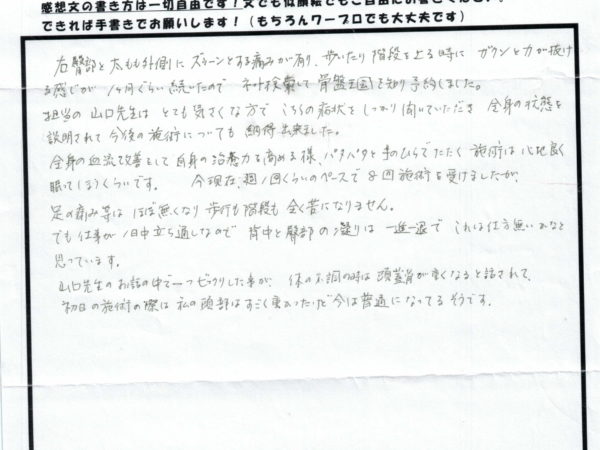 感想文の書き方は一切自由です！文でも似顔絵でもご自由に
できれば手書きでお願いします！（もちろんワープロでも大丈夫です）
右臀部と太もも外側にズゥーンとする痛みが有り、歩いたり階段を上る時に ガクンと力が抜け
る感じが 1ヶ月ぐらい続いたので ネット検索して骨盤王国を知り予約しました。
担当の山口先生は とても気さくな方で こちらの症状をしっかり聞いていただき 全身の状態を
説明されて 今後の施術についても 納得出来ました。
全身の血流改善をして自身の治癒力を高める様、パタパタと手のひらでたたく 施術は 心地良く
眠ってしまうくらいです。 今現在、週1回くらいのペースで8回施術を受けましたが
足の痛み等は ほぼ無くなり 歩行も階段も 全く苦になりません。
でも仕事が 1日中立ち通しなので 背中と臀部の凝りは 一進一退で これは仕方無いかなと
思っています。
山口先生のお話の中で一つビックリした事が、 体の不調の時は 頭蓋骨が重くなると話されて、
初日の施術の際は 私の頭部はすごく重かった だが今は普通になってるそうです。